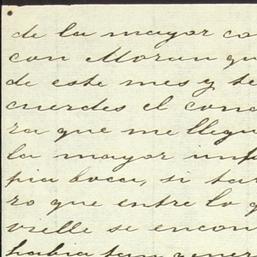 de la mayor co
con Morun qu
de este mes y te
cuerdes el conc
ra que me llegu
la mayor imp
pia boca, si ta
ro que entre lo q
vielle se encon
habia